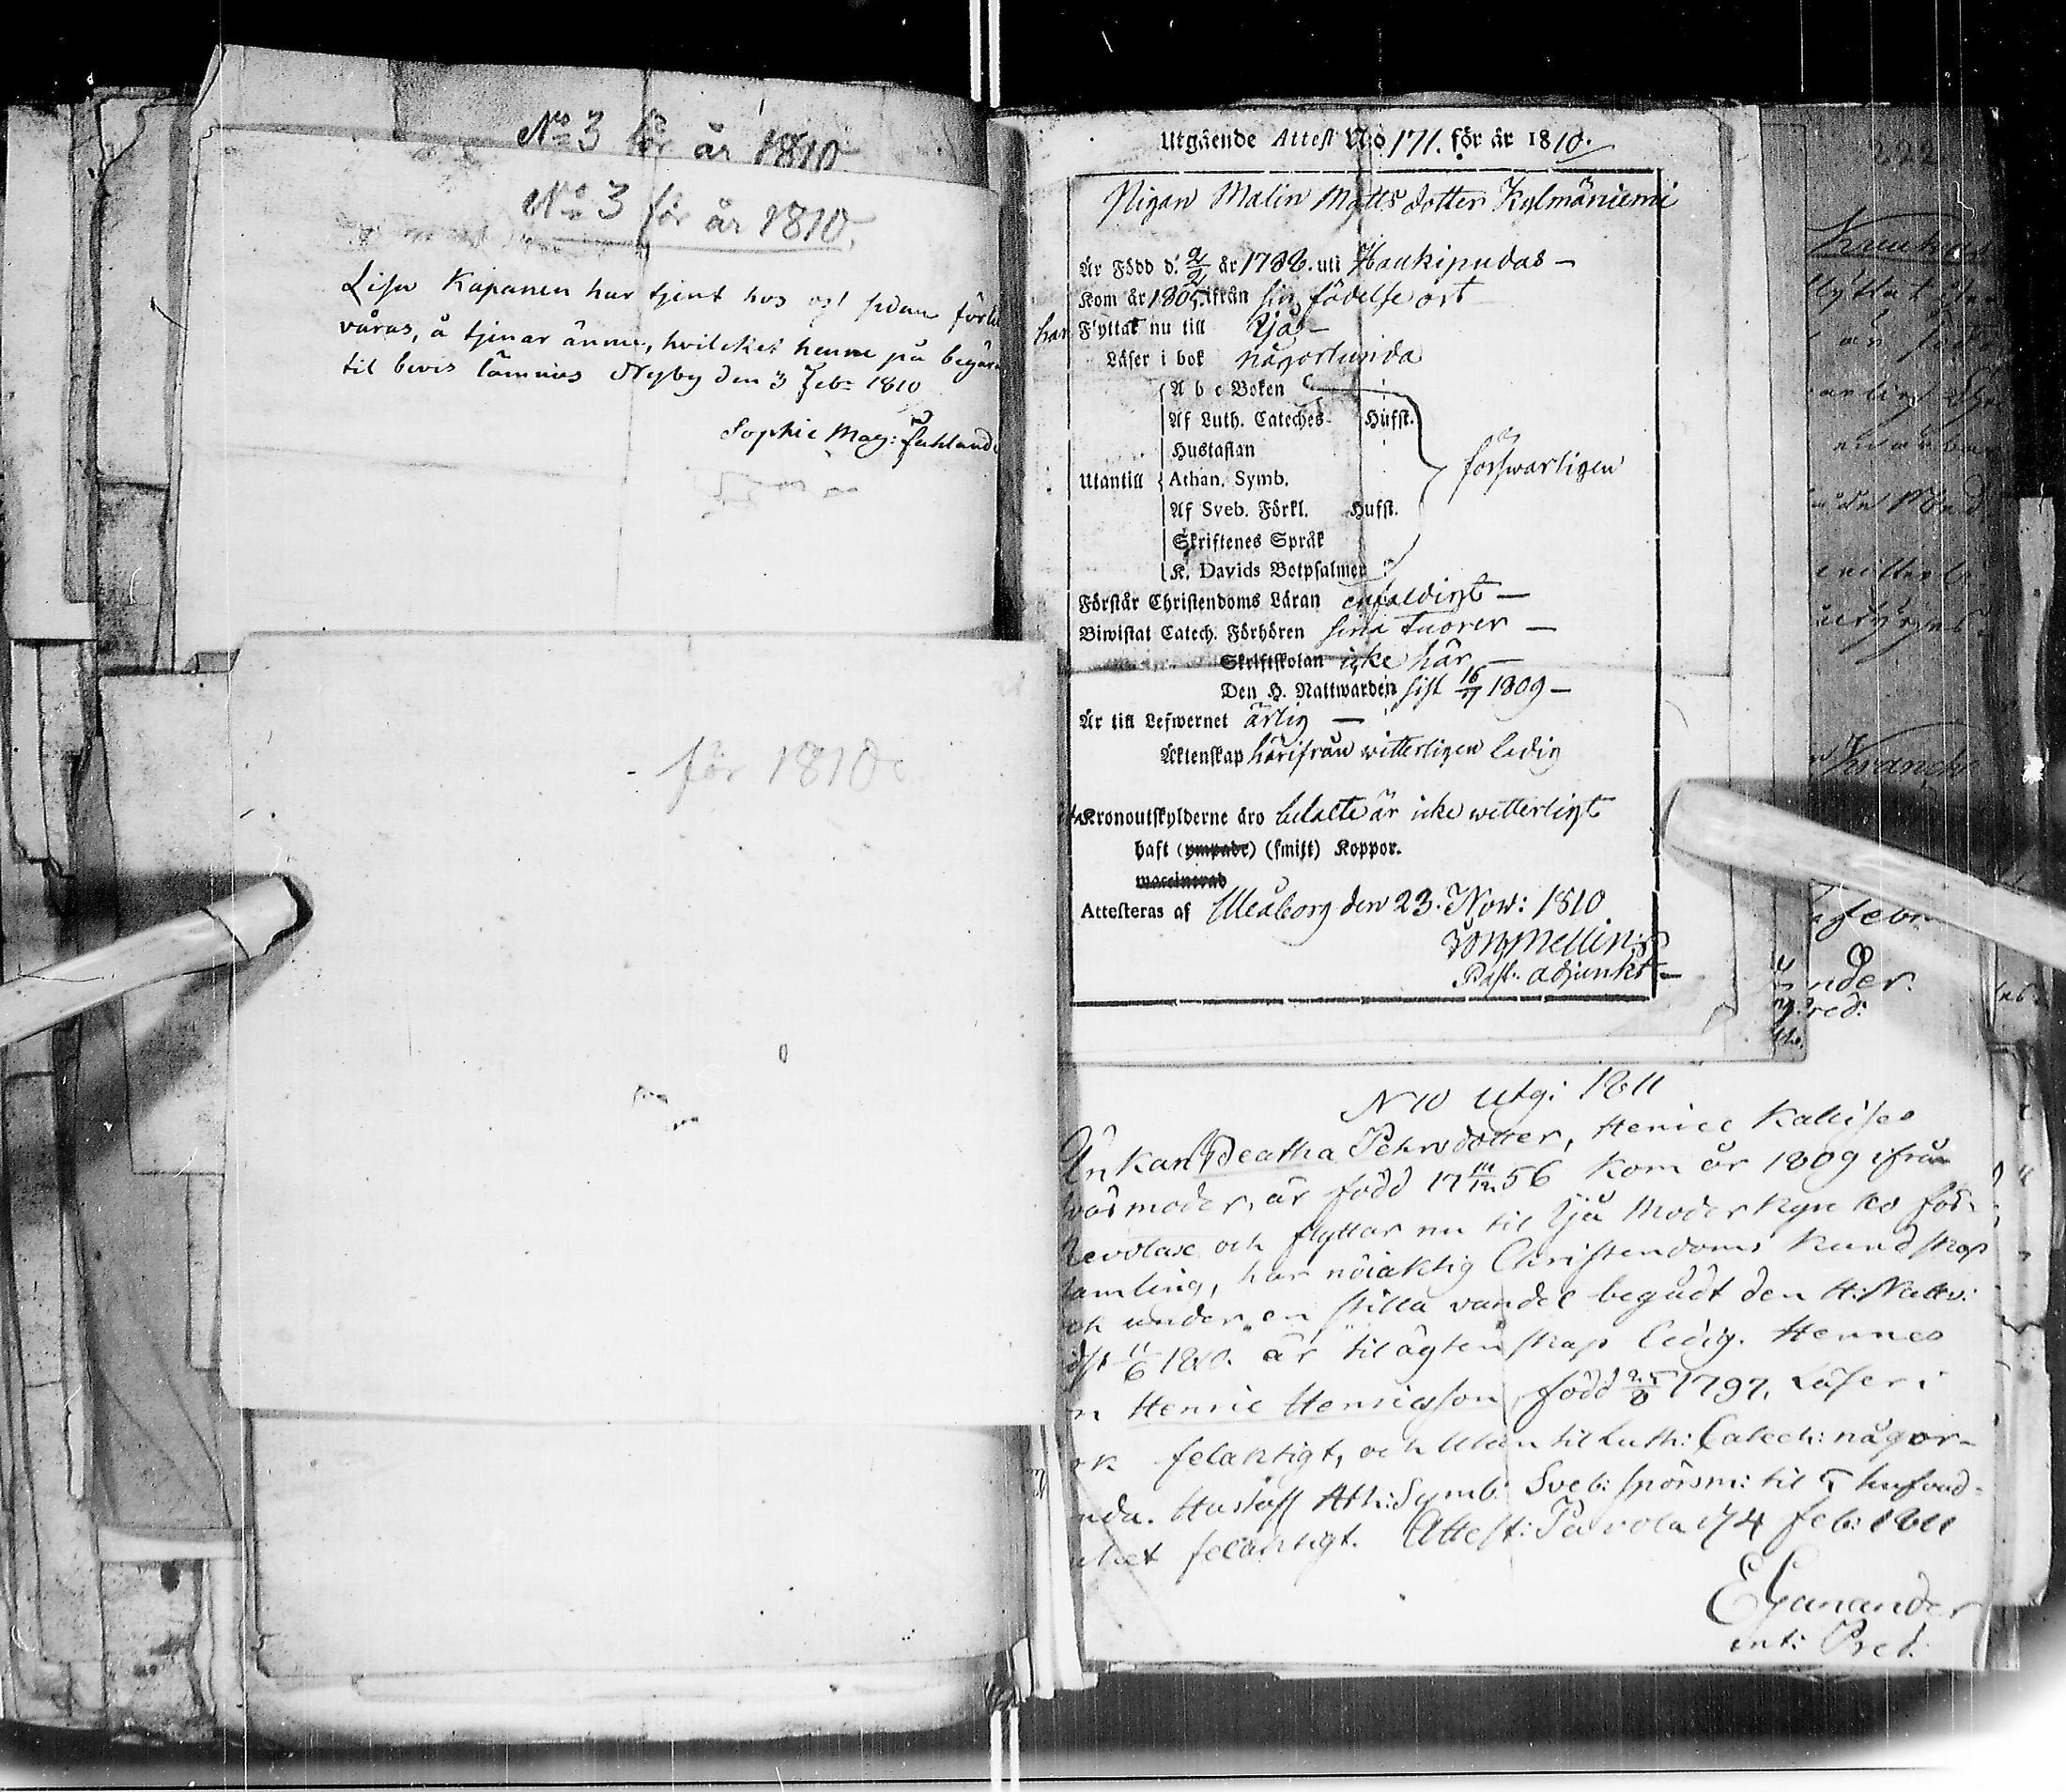 No 3 för år 1810
No 3 för år 1810.
Lisa Kapanen har tjent hos oss sedan
våras, å tjenar ännu, hvilcket henne på begär
til bevis lämnas Nyby den 3 Feb: 1810
Sophie Mag: Fahland
för 1810
Utgående Attest No 171. för år 1810.
Pigan Malin Matts dotter Kylmäniemi
Är Född d. 2/2 år 1788. uti Haukipudas —
Kom år 1805 ifrån sin födelse ort
har Flyttat nu till Ijå —
Läser i bok någorlunda
A b c Boken
Af Luth. Cateches. Hufst.
Hustaflan
Utantill Athan. Symb. förswarligen
Af Sveb. Förkl. Hufst.
Skriftenes Språk
K. Davids Botpsalmer
Förstår Christendoms Läran enfaldigt —
Biwistat Catech. Förhören sina tuorer —
Skriftskolan icke här —
Den H. Nattwarden sist 16/7 1809 —
Är till Lefwernet ärlig —
Äktenskap härifrån witterligen ledig
Kronoutskylderne äro betalte är icke witterligt
haft (ympade) (smitt) Koppor.
waccinerad
Attesteras af Uleåborg den 23. Now: 1810
Mellin
Past. adjunkt —
N 10 utg: 1811
Enkan Beatha Pehrsdotter, Henric Kallises
moder, är född 17 56 kom år 1809 ifrån
Revolax och flyttar nu til Ijå Moderkyrko för-
samling, har nöiaktig Christendoms kundskap
och under en stilla vandel begådt den H: Nattv:
sist 11/6 1810. är til ägtenskap ledig. Hennes
son Henric Henricsson född 25/8 1797, Läser i
bok felaktigt, och utan til Luth: Catech: någor-
lunda. Hustafl Ath: Symb: Sveb: spörsm: til 5 hufvud-
felaktigt. Attest: Pavola d 4 Feb: 1811
E Ganander
Pred.